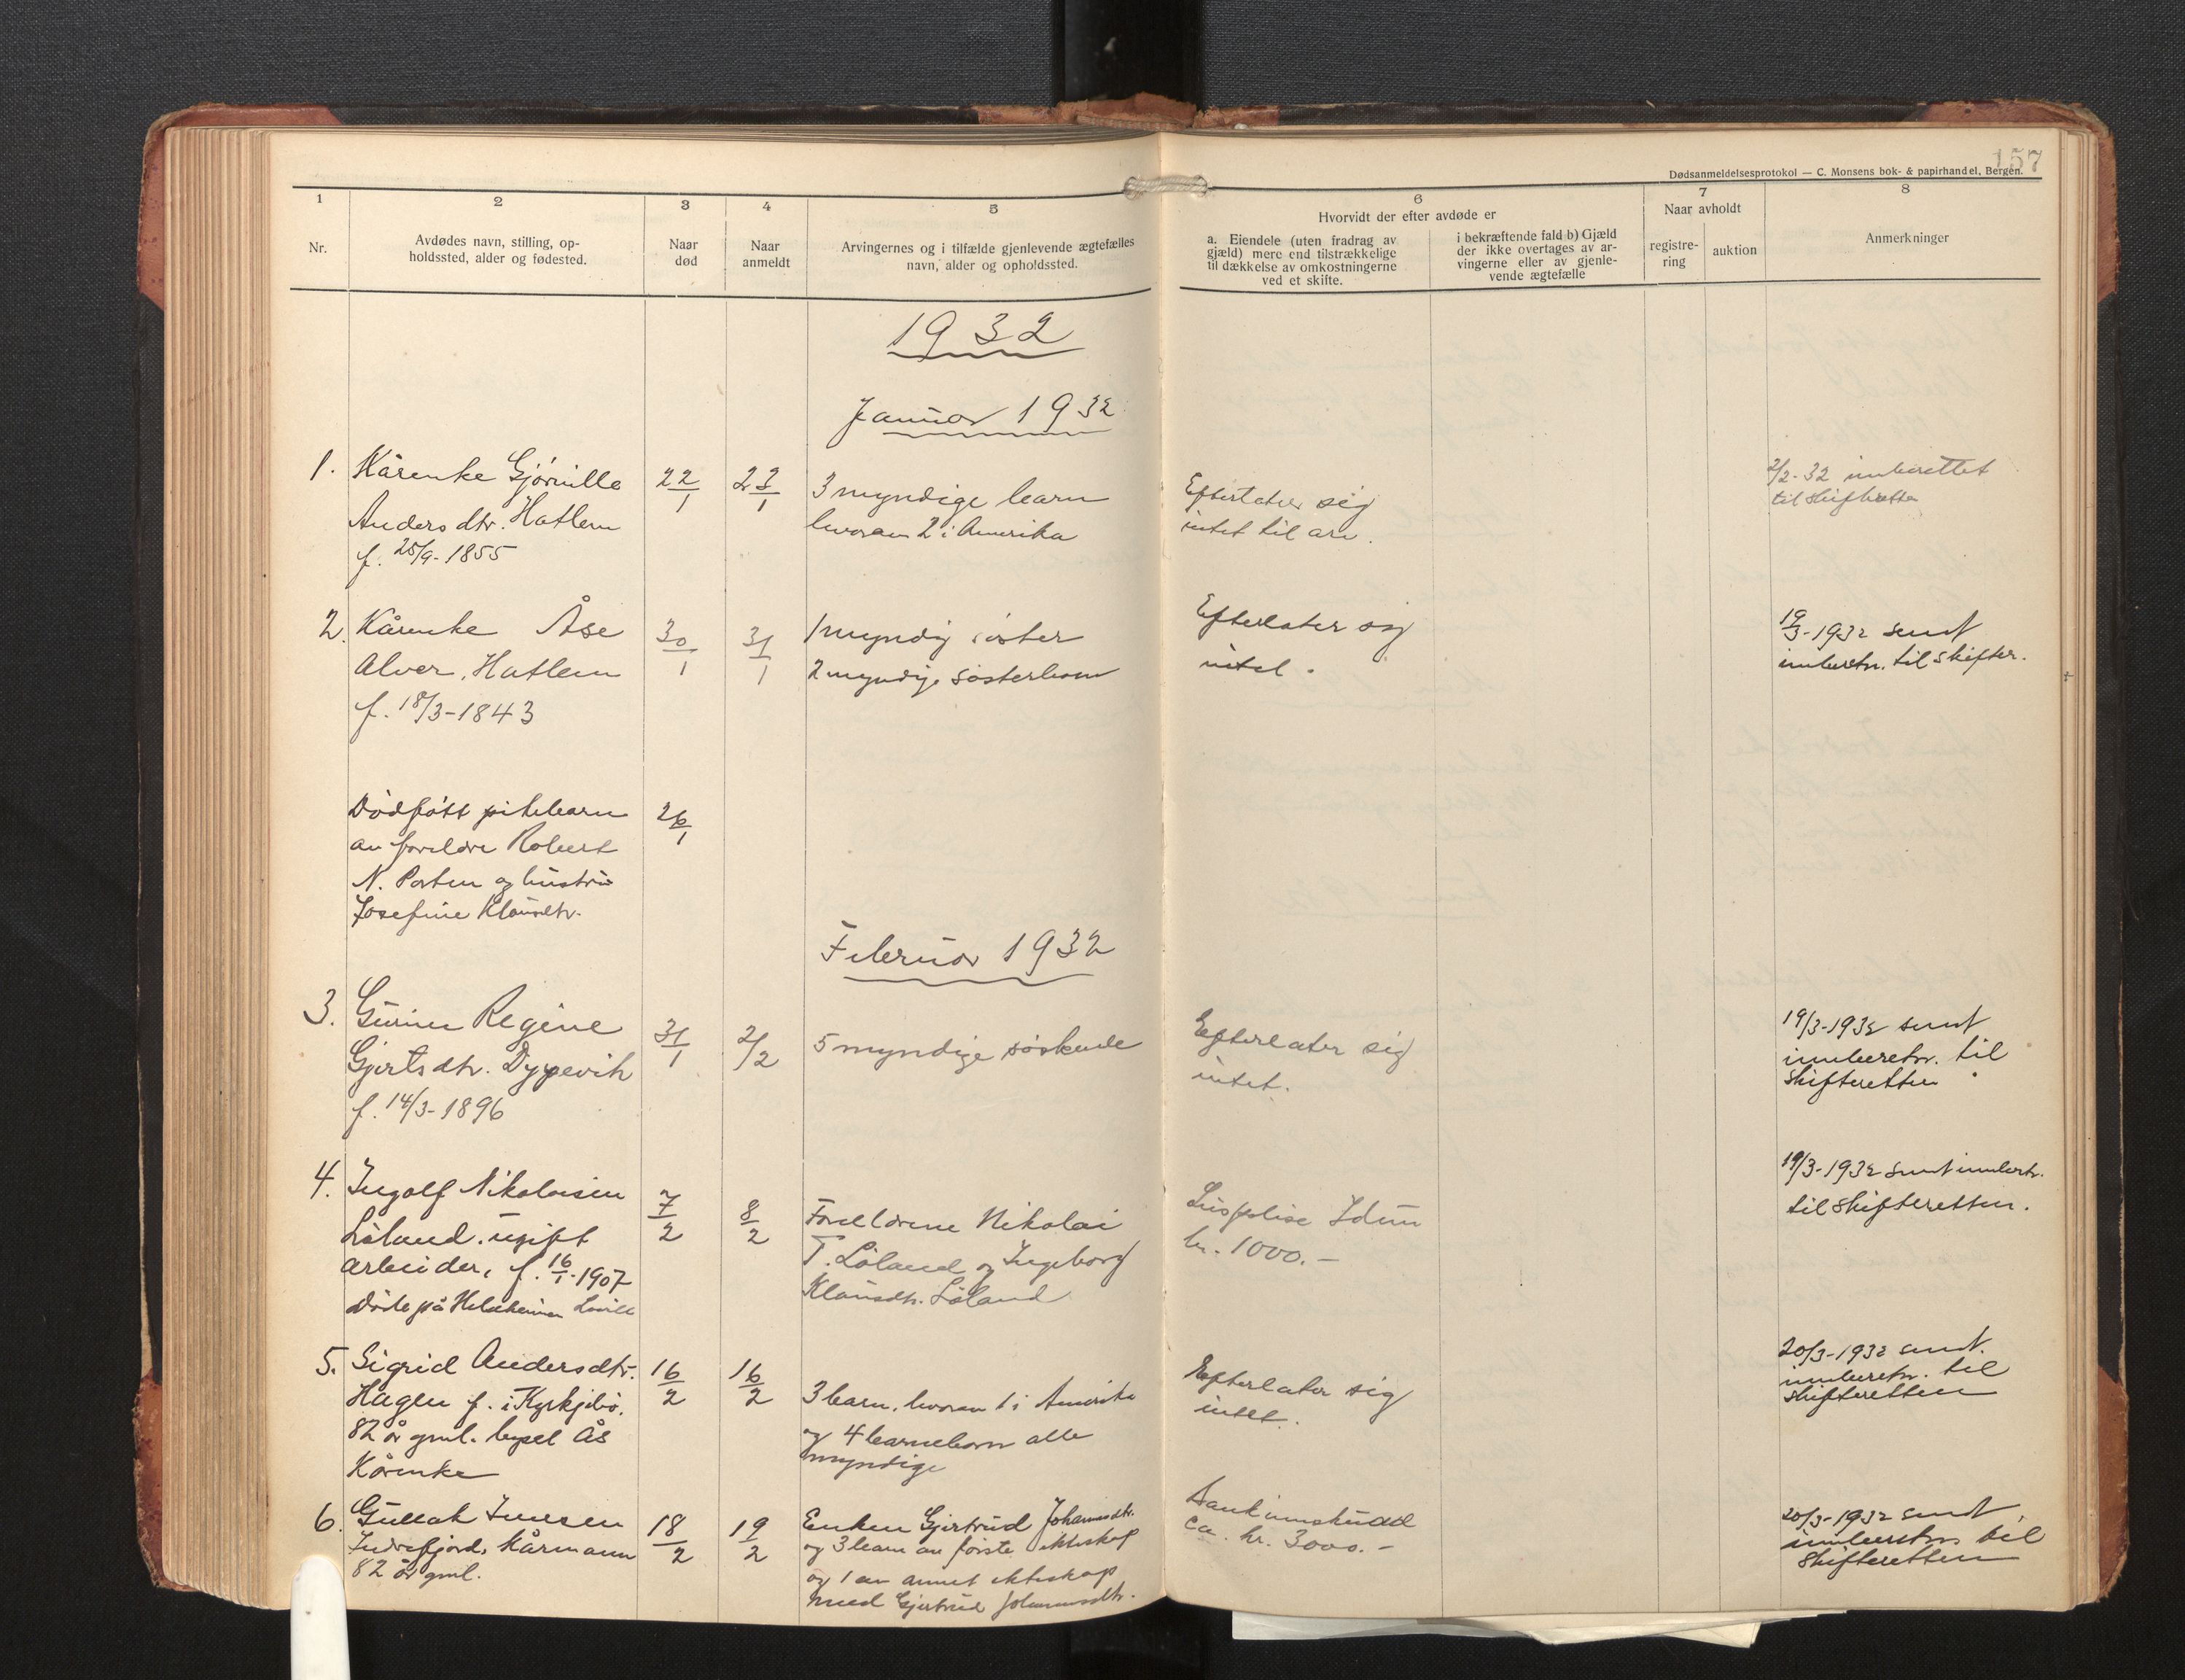 157
Dødsanmeldelsesprotokol — C. Monsens bok- & papirhandel, Bergen.
1
2
3
4
5
6
7
8
Nr.
Avdødes navn, stilling, op-
holdssted, alder og fødested.
Naar
død
Naar
anmeldt
Arvingernes og i tilfælde gjenlevende ægtefælles
navn, alder og opholdssted.
Hvorvidt der efter avdøde er
a. Eiendele (uten fradrag av
gjæld) mere end tilstrækkelige
til dækkelse av omkostningerne
ved et skifte.
i bekræftende fald b) Gjæld
der ikke overtages av ar-
vingerne eller av gjenle-
vende ægtefælle
Naar avholdt
registre-
ring
auktion
Anmerkninger
1932
Januar 1932
1. Kårenke
Anders dtr. Hatlem
f. 25/9-1855
22/1
23/1
3 myndige barn
hvorav 2 i Amerika
Efterlater sig
intet til arv.
2/2-32 innberettet
til skifteretten
2. Kårenke Åse
Alver, Hatlem
f. 18/3-1843
30/1
31/1
1 myndig søster
2 myndige søsterbarn
Efterlater sig
intet.
19/3-1932 sendt
innberetn. til skifter.
Dödfött pikebarn
av foreldre Robert
N. Porten og hustru
Josefine Klausdtr.
26/1
Februar 1932
3. Regine
Gjerts dtr. Dypevik
f. 14/3-1896
31/1
2/2
5 myndige söskende
Efterlater sig
intet.
19/3-1932 sendt
innberetn. til
skifteretten
4. Ingolf Nikolaisen
Löland. ugift
arbeider, f. 16/1-1907
Döde på
7/2
8/2
Foreldrene Nikolai
T. Löland og Ingeborg
Klausdtr. Löland
Livspolise Idun
kr. 1000.-
19/3-1932 sendt innbertn.
til skifteretten.
5. Sigrid Andersdtr.
Hagen f. i Kyrkjebö.
82 år gml. bopel Ås
Kårenke
16/2
16/2
3 barn, hvorav 1 i Amerika
og 4 barnebarn alle
myndige
Efterlater sig
intet.
20/3-1932 sendt.
innberetn. til
skifteretten
6. Gullak Jensen
Indrefjord, kårmann
82 år gml.
18/2
19/2
Enken Gjertrud Johannesdtr.
og 3 barn av förste ekteskap
og 1 av annet ekteskap
med Gjertrud Johannesdtr.
Bankinnskudd
ca. kr. 3000.-
20/3-1932 sendt
innberetn. til
skifteretten